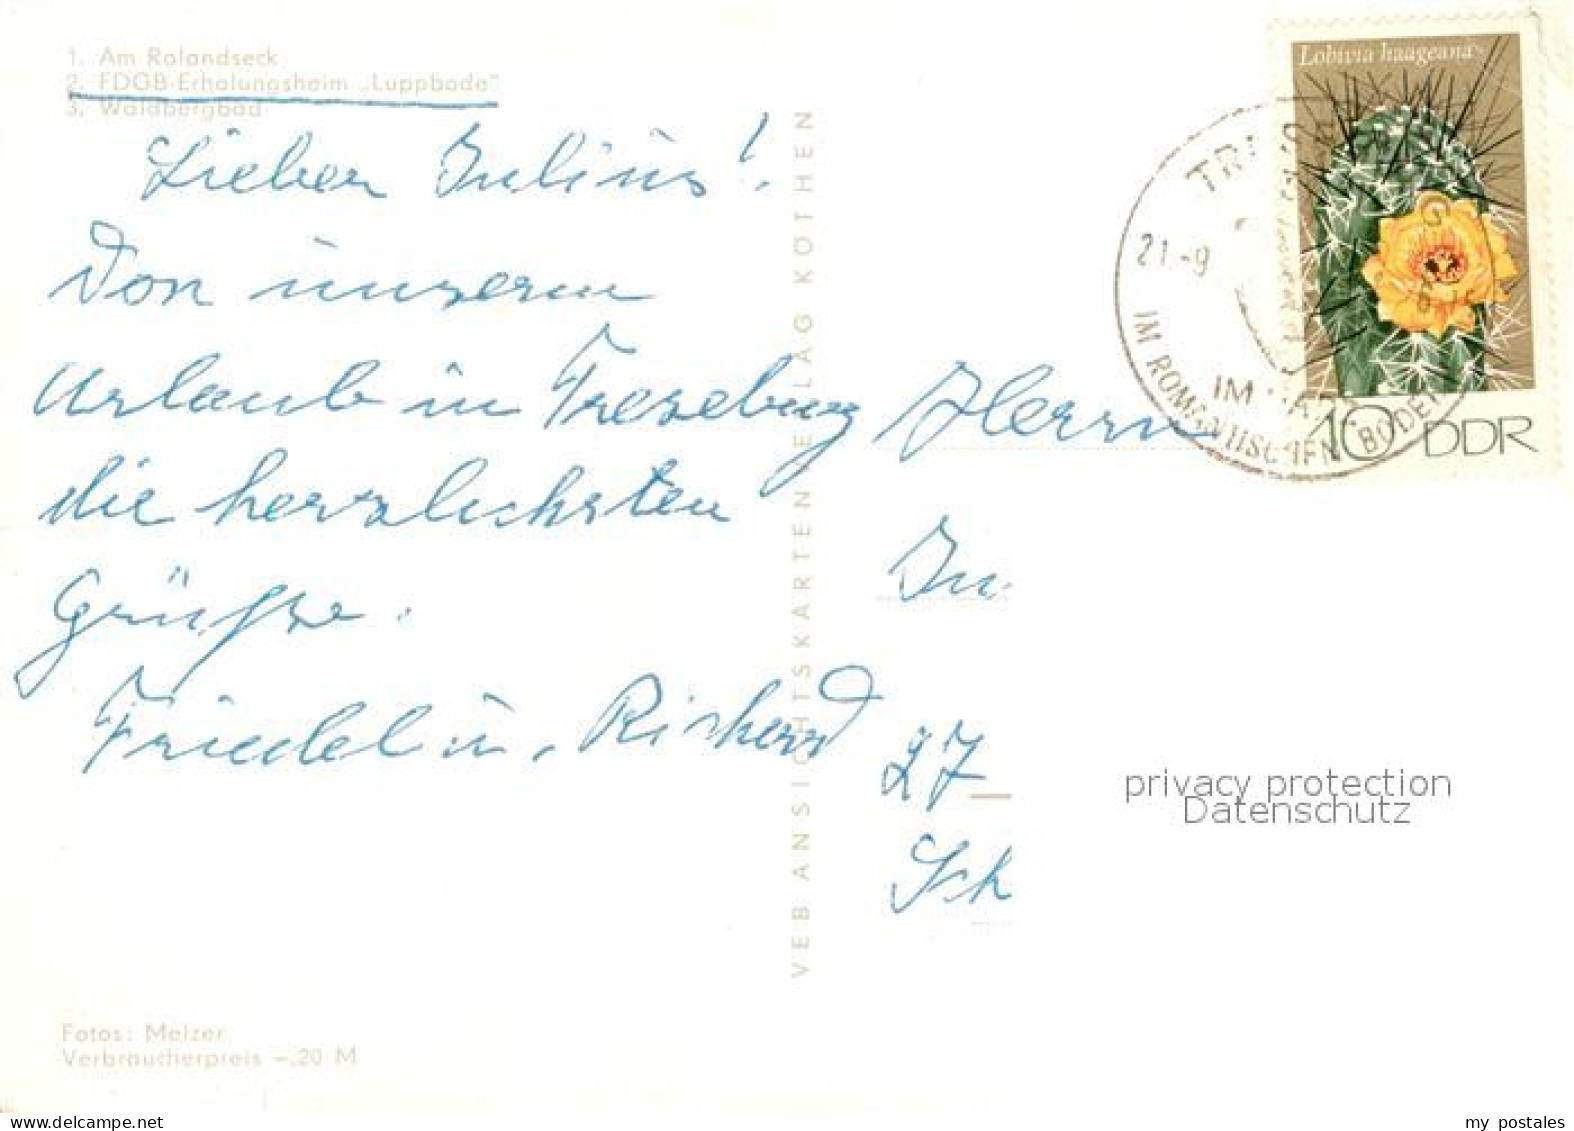 1. Am Rolandseck
2. FDGB-Erholungsheim „Luppbode"
3. Waldbergbad
Lieber Julius!
Von unserm
Urlaub in Treseburg
die herzlichsten
Grüße.
Friedel u. Richard
VEB ANSICHTSKARTENVERLAG KÖTHEN
Herrn
Ju
27
Sch
Lobivia haageana
10 DDR
21.-9
IM
IM ROMANTISCHEN BODETAL
privacy protection
Datenschutz
Fotos: Melzer
Verbraucherpreis –.20 M
www.delcampe.net
my_postales